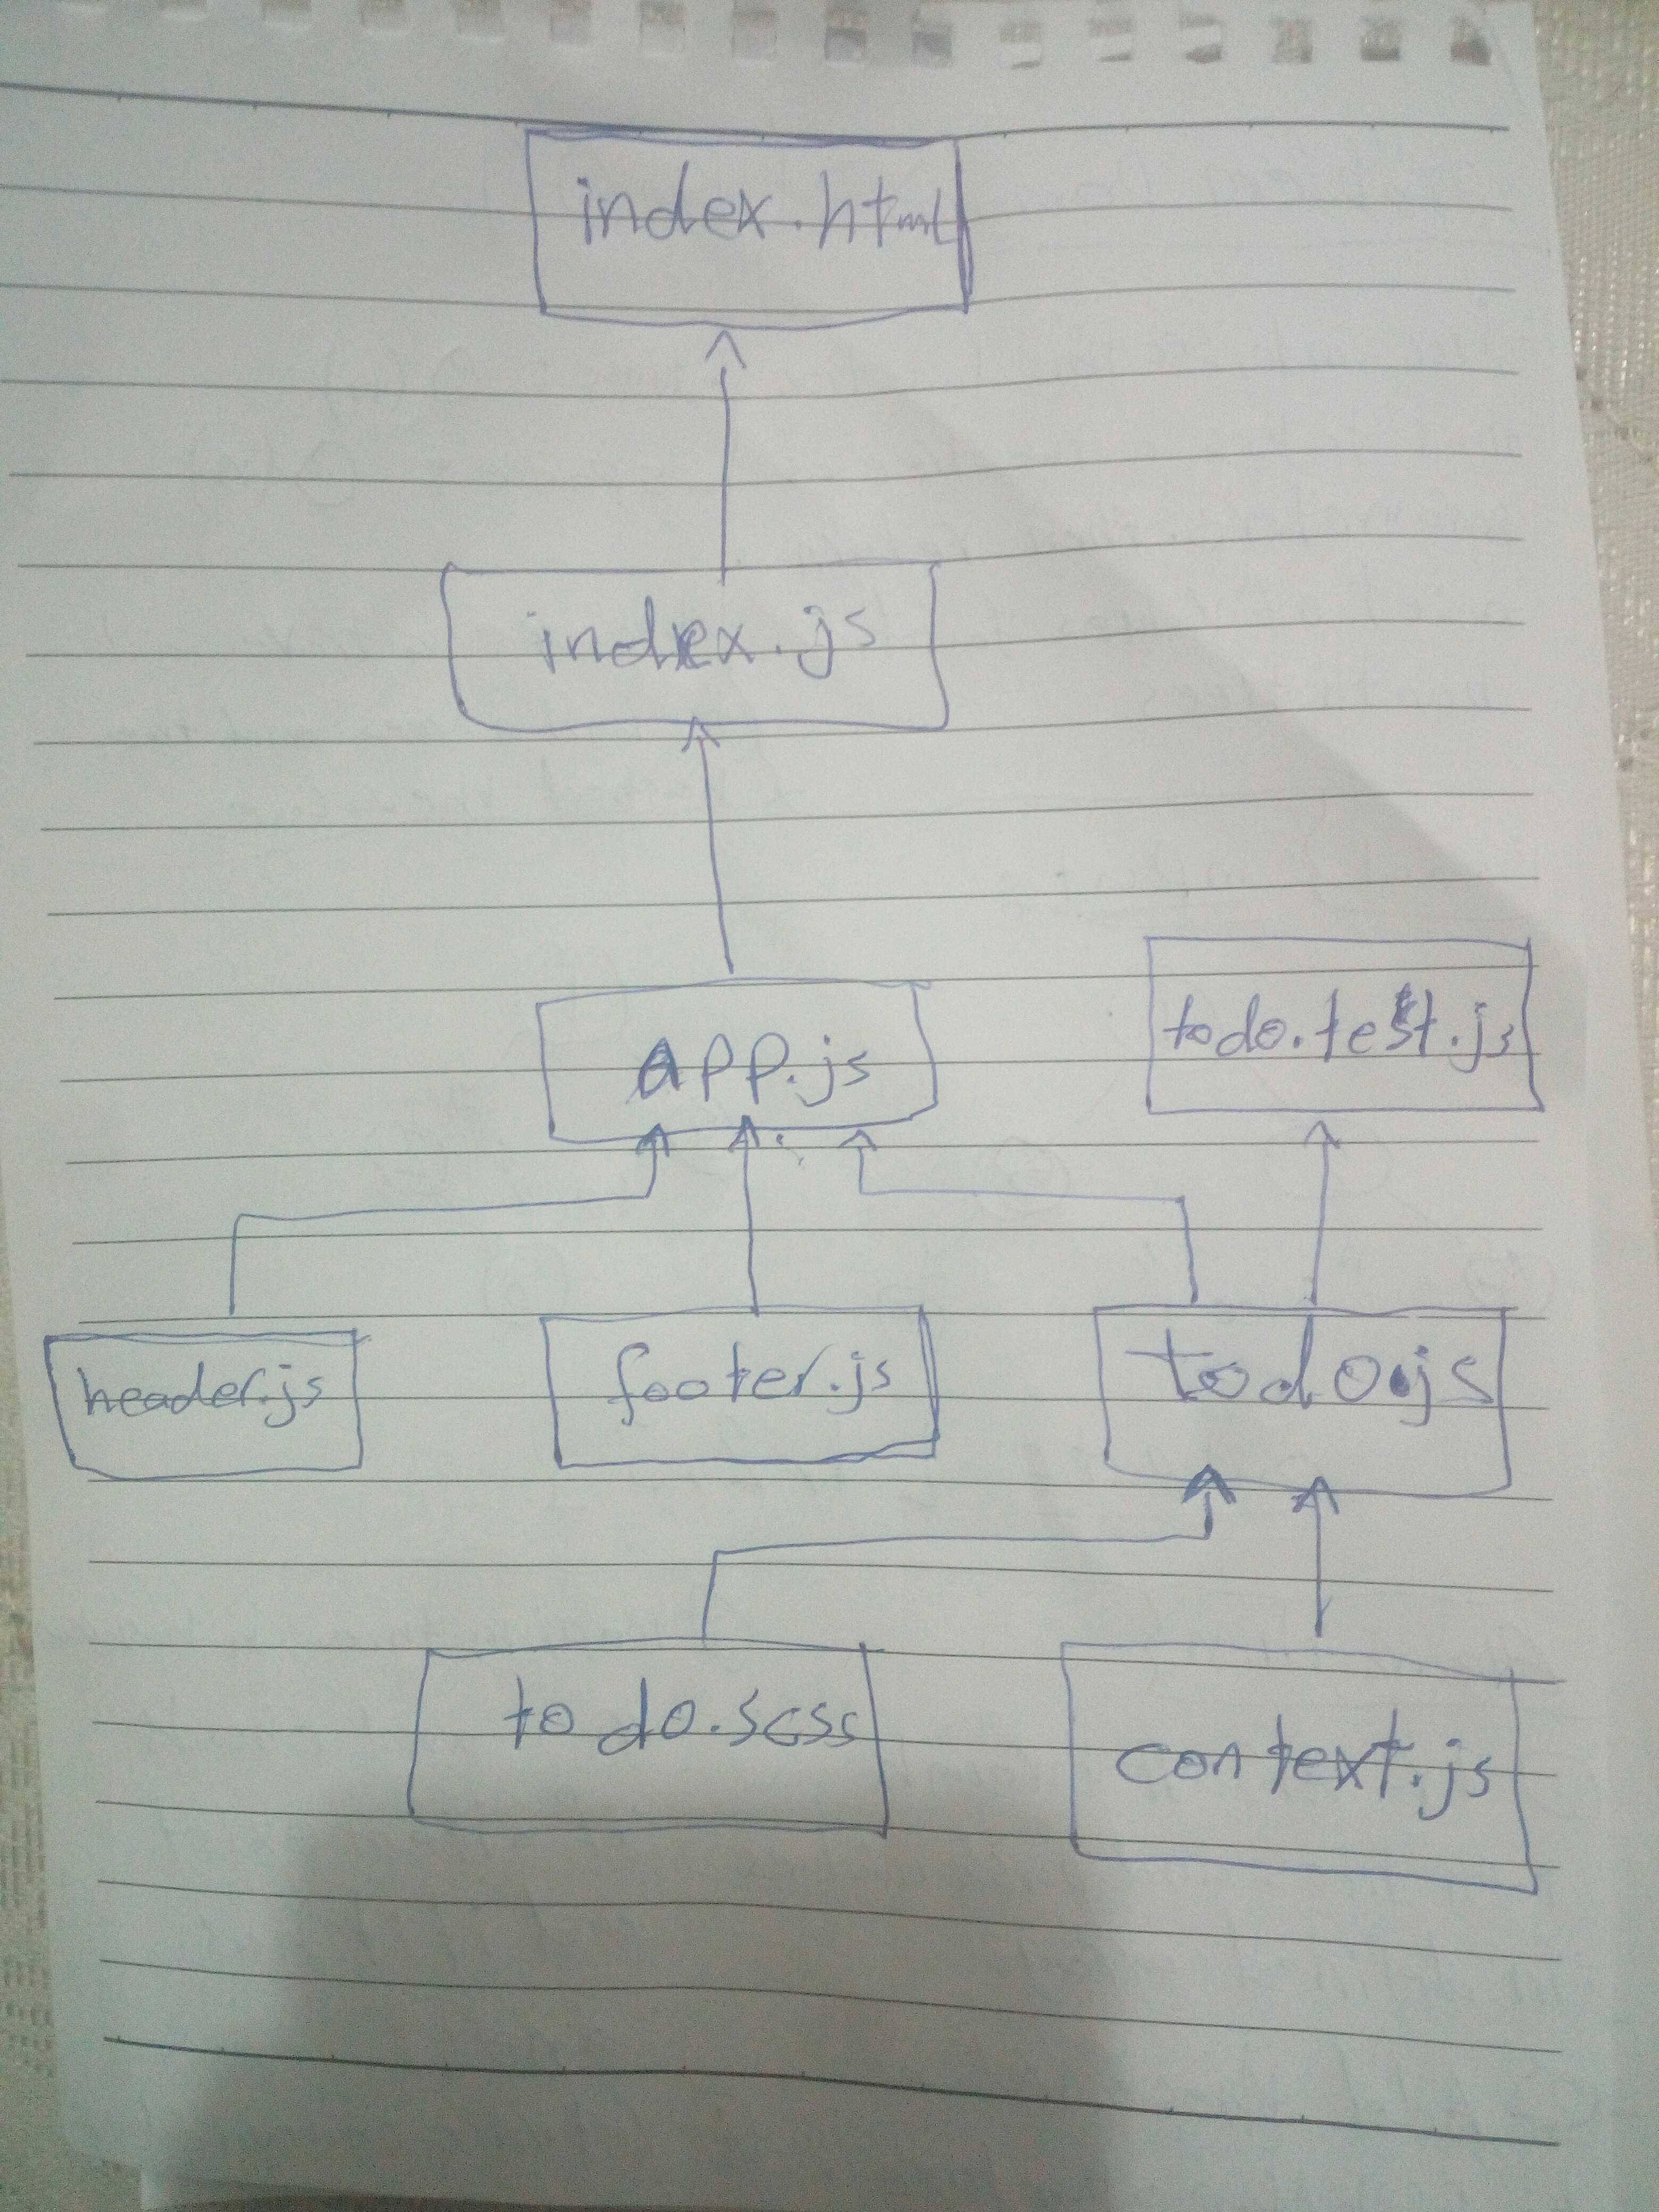 index.html
index.js
App.js
todo.test.js
header.js
footer.js
todo.js
todo.scss
context.js